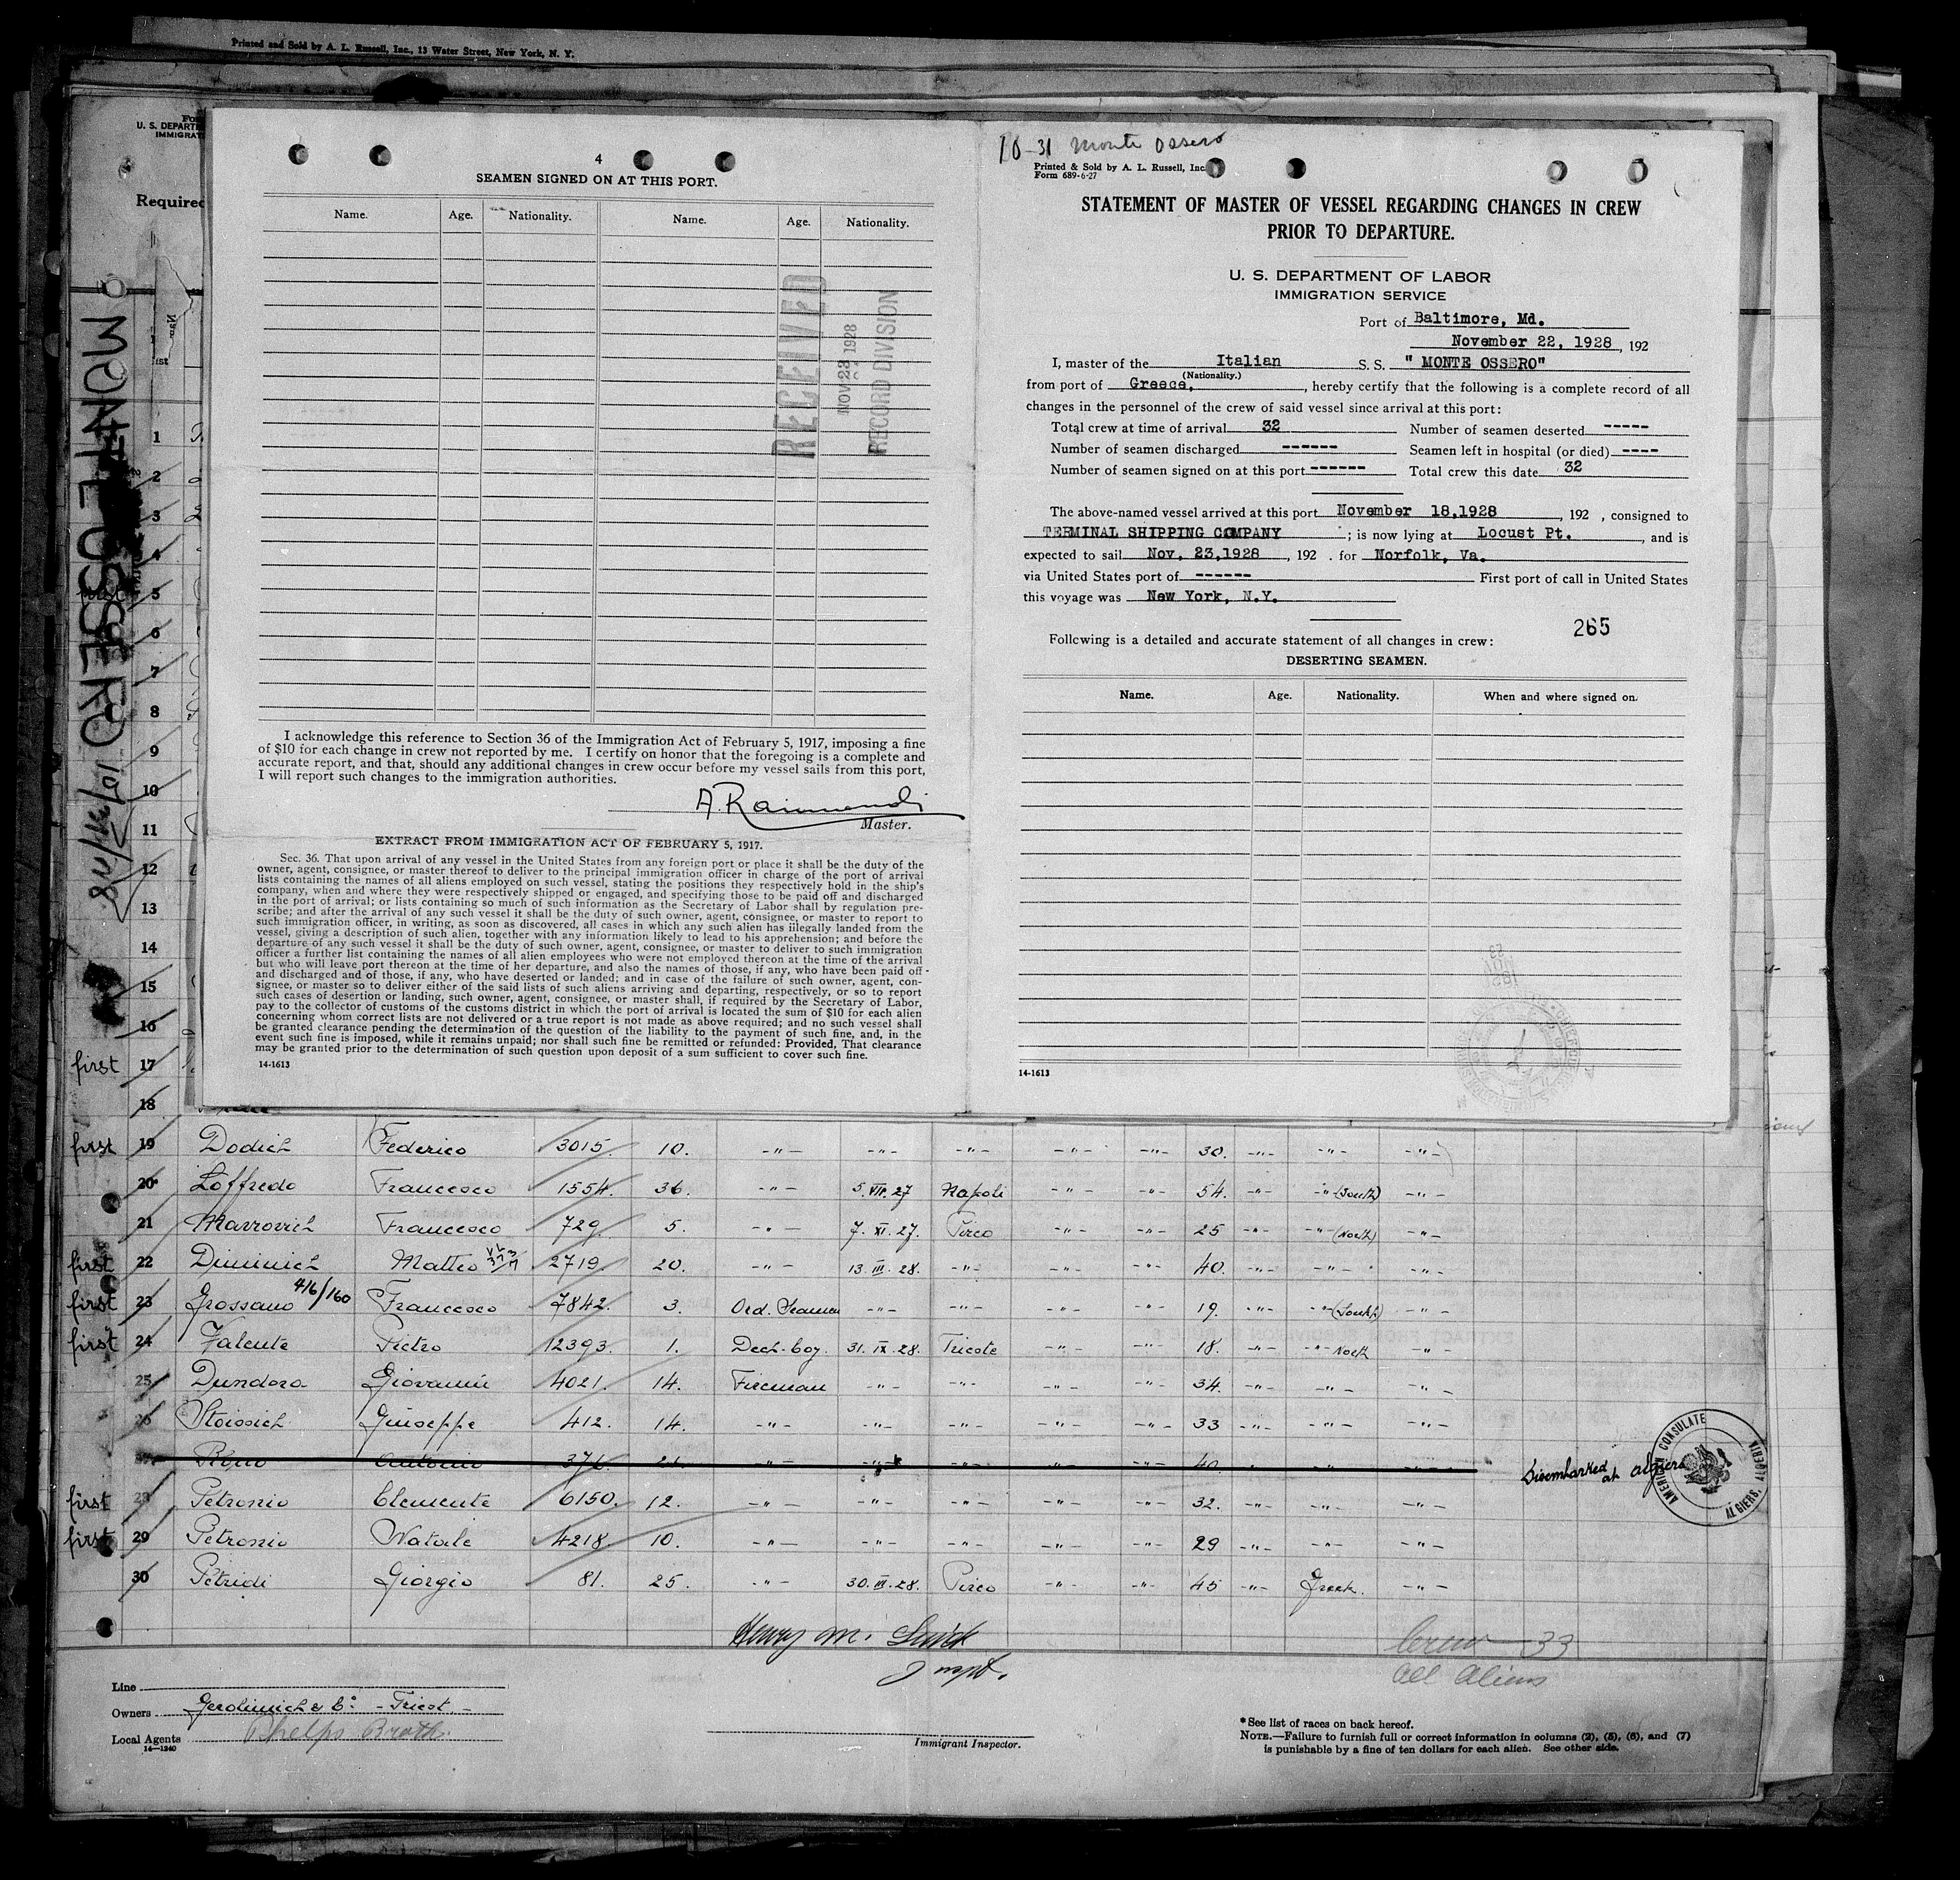 Printed and Sold by A. L. Russell, Inc., 13 Water Street, New York, N. Y.
U. S. DEPART
IMMIGRAT
Required
MONTE OSSERO 10/31/28
4
SEAMEN SIGNED ON AT THIS PORT.
Name. Age. Nationality. Name. Age. Nationality.
RECEIVED
NOV 23 1928
RECORD DIVISION
I acknowledge this reference to Section 36 of the Immigration Act of February 5, 1917, imposing a fine
of $10 for each change in crew not reported by me. I certify on honor that the foregoing is a complete and
accurate report, and that, should any additional changes in crew occur before my vessel sails from this port,
I will report such changes to the immigration authorities.
A. Raimondi
Master.
EXTRACT FROM IMMIGRATION ACT OF FEBRUARY 5, 1917.
Sec. 36. That upon arrival of any vessel in the United States from any foreign port or place it shall be the duty of the
owner, agent, consignee, or master thereof to deliver to the principal immigration officer in charge of the port of arrival
lists containing the names of all aliens employed on such vessel, stating the positions they respectively hold in the ship's
company, when and where they were respectively shipped or engaged, and specifying those to be paid off and discharged
in the port of arrival; or lists containing so much of such information as the Secretary of Labor shall by regulation pre-
scribe; and after the arrival of any such vessel it shall be the duty of such owner, agent, consignee, or master to report to
such immigration officer, in writing, as soon as discovered, all cases in which any such alien has illegally landed from the
vessel, giving a description of such alien, together with any information likely to lead to his apprehension; and before the
departure of any such vessel it shall be the duty of such owner, agent, consignee, or master to deliver to such immigration
officer a further list containing the names of all alien employees who were not employed thereon at the time of the arrival
but who will leave port thereon at the time of her departure, and also the names of those, if any, who have been paid off
and discharged and of those, if any, who have deserted or landed; and in case of the failure of such owner, agent, con-
signee, or master so to deliver either of the said lists of such aliens arriving and departing, respectively, or so to report
such cases of desertion or landing, such owner, agent, consignee, or master shall, if required by the Secretary of Labor,
pay to the collector of customs of the customs district in which the port of arrival is located the sum of $10 for each alien
concerning whom correct lists are not delivered or a true report is not made as above required; and no such vessel shall
be granted clearance pending the determination of the question of the liability to the payment of such fine, and, in the
event such fine is imposed, while it remains unpaid; nor shall such fine be remitted or refunded: Provided, That clearance
may be granted prior to the determination of such question upon deposit of a sum sufficient to cover such fine.
14-1613
10-31 Monte Ossero
Printed & Sold by A. L. Russell, Inc
Form 689-6-27
STATEMENT OF MASTER OF VESSEL REGARDING CHANGES IN CREW
PRIOR TO DEPARTURE.
U. S. DEPARTMENT OF LABOR
IMMIGRATION SERVICE
Port of Baltimore, Md.
November 22, 1928, 192
I, master of the Italian S. S. " MONTE OSSERO"
(Nationality.)
from port of Greece, , hereby certify that the following is a complete record of all
changes in the personnel of the crew of said vessel since arrival at this port:
Total crew at time of arrival 32 Number of seamen deserted -----
Number of seamen discharged ------ Seamen left in hospital (or died) ----
Number of seamen signed on at this port ------ Total crew this date 32
The above-named vessel arrived at this port November 18,1928 , 192 , consigned to
TERMINAL SHIPPING COMPANY ; is now lying at Locust Pt. , and is
expected to sail Nov. 23,1928 , 192 . for Norfolk, Va.
via United States port of ------ First port of call in United States
this voyage was New York, N.Y.
265
Following is a detailed and accurate statement of all changes in crew:
DESERTING SEAMEN.
Name. Age. Nationality. When and where signed on.
14-1613
1
2
3
4
first 5
6
7
8
9
10
11
12
13
14
15
16
first 17
18
first 19 Dodich Federico 3015. 10. -"- -"- -"- -"- -"- 30. -"- -"- -"-
20 Loffredo Francesco 1554. 36. -"- 5. VII. 27 Napoli -"- -"- 54. -"- -"- (South) -"-
21 Marrovich Francesco 729. 5. -"- 7. XI. 27. Pireo -"- -"- 25 -"- -"- (North) -"-
first 22 Diminich Matteo 2719. 20. -"- 13. III. 28. -"- -"- -"- 40. -"- -"- -"-
first 23 Grossano 416/160 Francesco 7842. 3. Ord. Seaman -"- -"- -"- -"- 19. -"- -"- (South) -"-
first 24 Valente Pietro 12393. 1. Deck-boy. 31. IX. 28. Trieste -"- -"- 18. -"- -"- North -"-
25 Dundora Giovanni 4021. 14. Fireman -"- -"- -"- -"- 34. -"- -"- -"-
26 Stoissich Giuseppe 412. 14. -"- -"- -"- -"- -"- 33 -"- -"- -"-
Antonio 376. 21. -"- -"- -"- -"- -"- 40. Disembarked at Algiers
AMERICAN CONSULATE
ALGIERS, ALGERIA
first 28 Petronio Clemente 6150. 12. -"- -"- -"- -"- -"- 32. -"- -"- -"-
first 29 Petronio Natale 4218. 10. -"- -"- -"- -"- -"- 29 -"- -"- -"-
30 Petridi Giorgio 81. 25. -"- 30. III. 28. Pireo -"- -"- 45 -"- Greek. -"-
Henry M.
Crew—33
All Aliens
Line
Owners Gerolimich & Co. - Triest -
Local Agents Phelps Broth.
14—1240
Immigrant Inspector.
*See list of races on back hereof.
NOTE.—Failure to furnish full or correct information in columns (2), (5), (6), and (7)
is punishable by a fine of ten dollars for each alien. See other side.